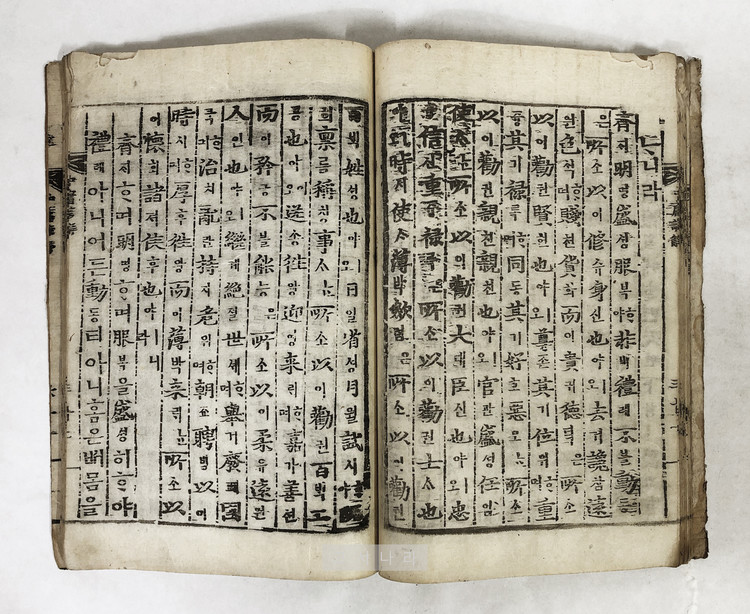 ᄃᆞ니라
齊ᄌᆡ明명盛셩服복ᄒᆞ야非비禮례不블動동
은所소以이修슈身신也야오去거讒참遠
원色ᄉᆡᆨᄒᆞ며賤쳔貨화而이貴귀德덕은所소
以이勸권賢현也야오尊존其기位위ᄒᆞ며重
듕其기祿록ᄒᆞ며同동其기好호惡오ᄂᆞᆫ所소
以이勸권親친親친也야오官관盛셩任임
使ᄉᆞᄂᆞᆫ所소以이勸권大대臣신也야오忠
튱信신重듕祿록은所소以이勸권士ᄉᆞ也야
오時시使ᄉᆞ薄박斂렴은所소以이勸권
百ᄇᆡᆨ姓셩也야오日일省셩月월試시ᄒᆞ야旣
희稟름稱칭事ᄉᆞᄂᆞᆫ所소以이勸권百ᄇᆡᆨ工
공也야오送송往왕迎영來ᄅᆡᄒᆞ며嘉가善션
而이矜긍不블能능은所소以이柔유遠원
人인也야오繼계絶졀世셰ᄒᆞ며擧거廢폐國
국ᄒᆞ며治치亂란持지危위ᄒᆞ며朝조聘빙以이
時시ᄒᆞ며厚후往왕而이薄박來ᄅᆡᄂᆞᆫ所소以
이懷회諸져侯후也야ㅣ니라
齊ᄌᆡᄒᆞ며明명ᄒᆞ며服복을盛셩히ᄒᆞ야
禮례아니어든動동티아니홈은ᄡᅥ몸을